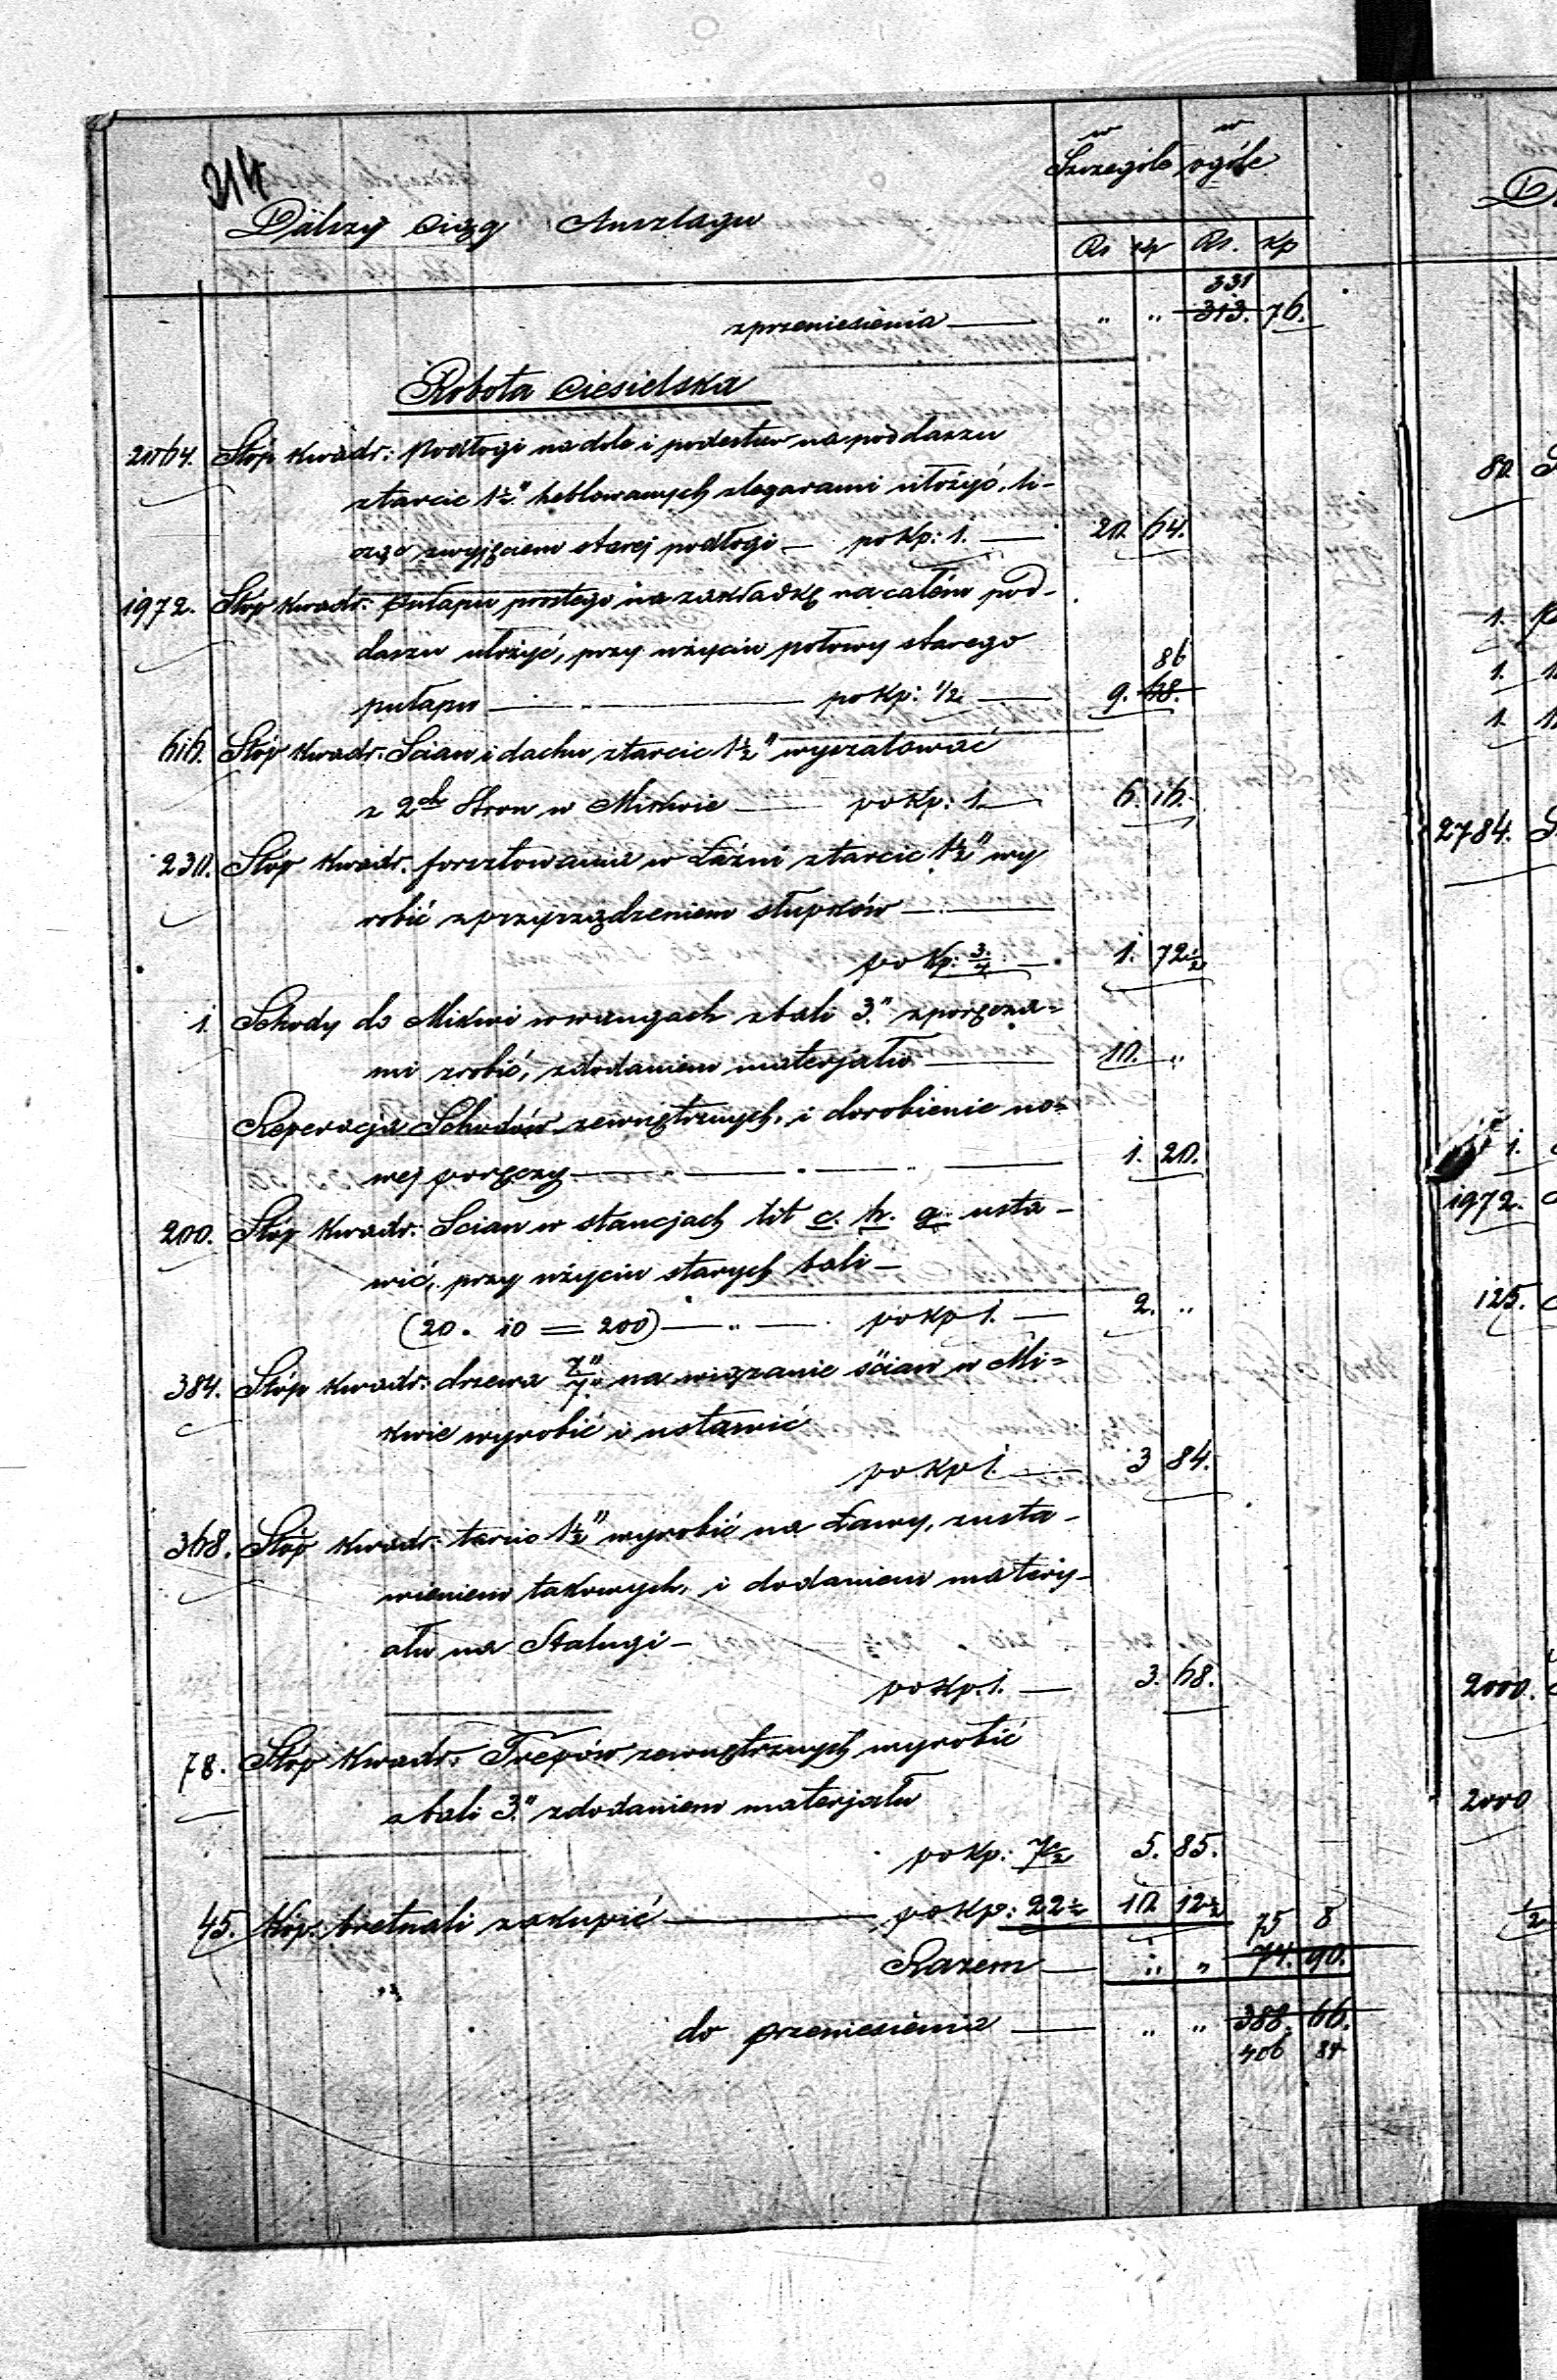 214
w w
Szczególe ogóle
Dalszy Ciąg Anszlagu
Rs kp Rs. kp
331
zprzeniesienia — " " 313. 76.
Robota Ciesielska
2064. Stóp kwadr: Podłogi na dole i podestów na poddaszu
ztarcic 1½" heblowanych zlegarami ułożyć, li-
cząc zwyjęciem starej podłogi — po Kp: 1. — 20. 64.
1972. Stóp kwadr: Pułapu prostego na zakładkę na całem pod-
daszu ułożyć, przy użyciu połowy starego
86
pułapu — po Kp: ½ — 9. 68.
616. Stóp kwadr: Scian i dachu ztarcic 1½" wyszalować
z 2ch Stron w Mikwie — po Kp: 1. — 6. 16.
230. Stóp kwadr. forsztowania w Łaźni ztarcic 1½" wy
robić zprzyrządzeniem słupków —
po Kp: ¾ — 1. 72½
1. Schody do Mikwi w wangach zbali 3." zporęcza=
mi zrobić, zdodaniem materjału — 10. "
Reperacja Schodów zewnętrznych, i dorobienie no=
wej poręczy — 1. 20.
200. Stóp kwadr: Scian w stancjach lit c. h. g. usta-
wić, przy użyciu starych bali —
(20. 10 = 200) — " — po kp 1. — 2. "
384. Stóp kwadr: drzewa 7"/7" na wiązanie ścian w Mi=
kwie wyrobić i ustawić
po kp 1. — 3 84.
368. Stóp kwadr: tarcic 1½" wyrobić na Ławy, zusta-
wieniem takowych, i dodaniem matery-
ału na Stalugi —
po kp. 1. — 3. 68.
78. Stóp Kwadr: Trepów zewnętrznych wyrobić
zbali 3." zdodaniem materjału
po Kp: 7½ 5. 85.
45. Kóp: bretnali zakupić — po Kp: 22½ 10 12½
75 8
Razem — " " 74. 90.
do przeniesienia — " " 388. 66.
406 84
80.
1.
1.
1.
2784.
1.
1972.
125.
2000.
2000
½